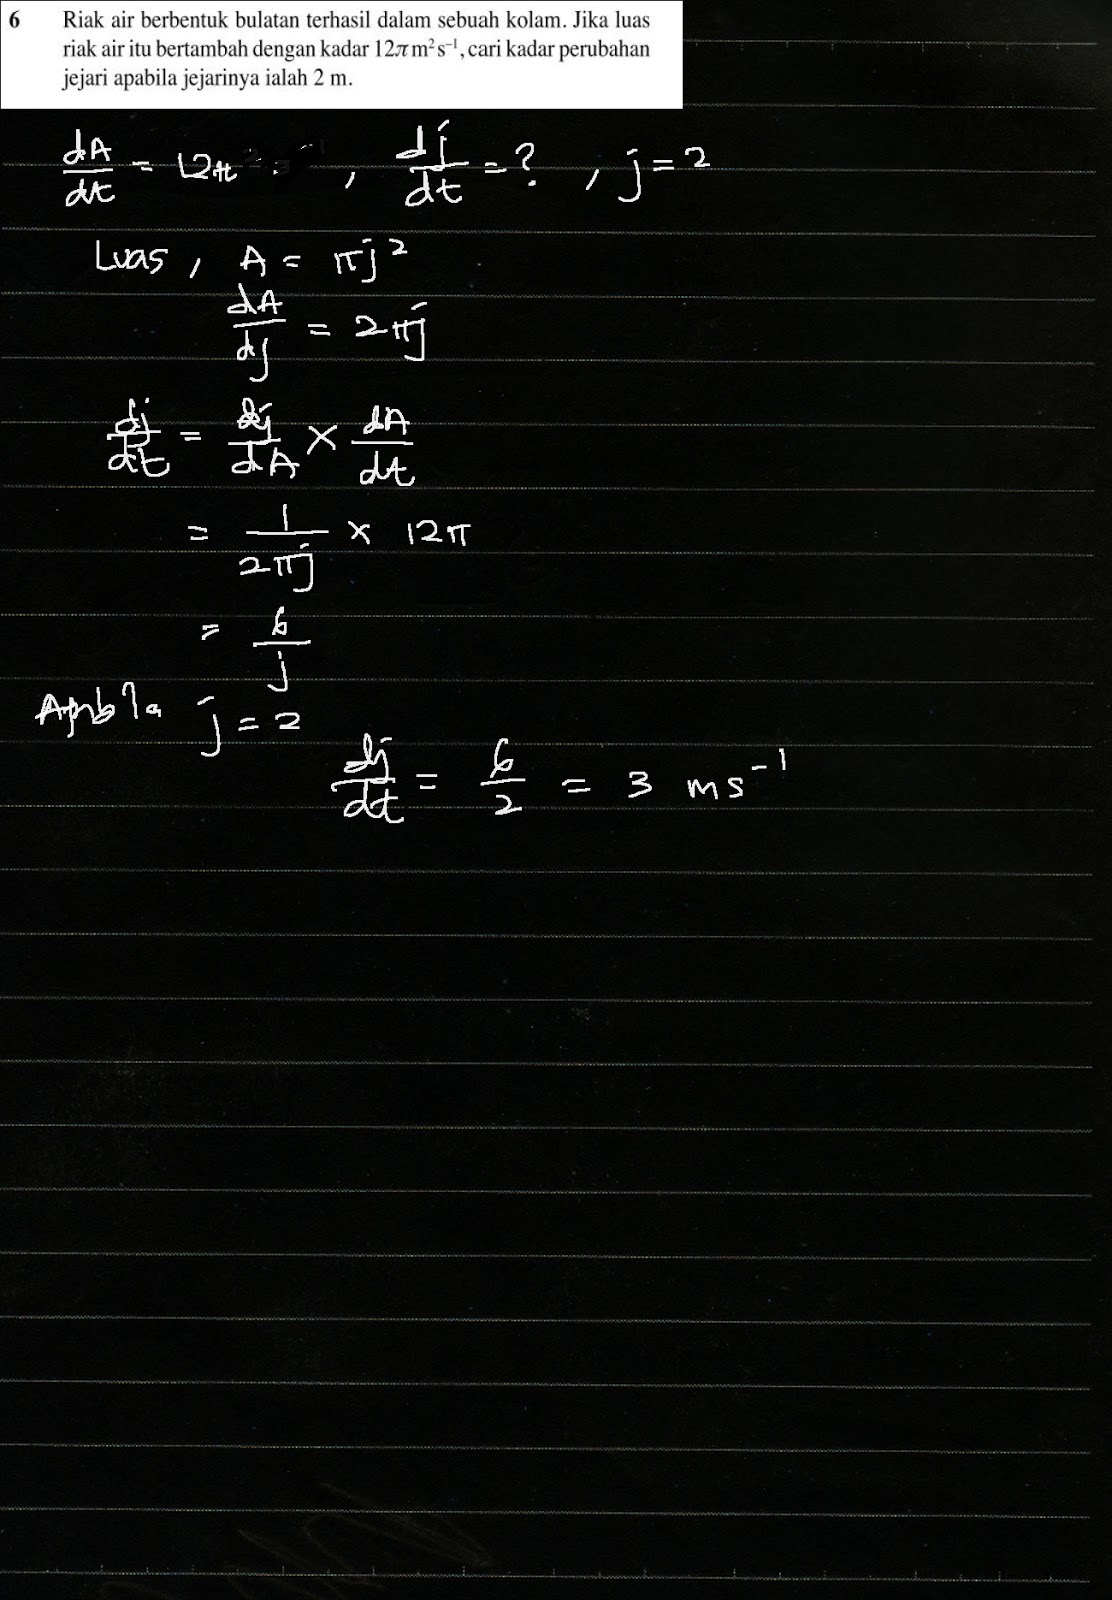 6 Riak air berbentuk bulatan terhasil dalam sebuah kolam. Jika luas
riak air itu bertambah dengan kadar 12π m² s⁻¹, cari kadar perubahan
jejari apabila jejarinya ialah 2 m.
dA/dt = 12π , dj/dt = ? , j = 2
Luas , A = πj²
dA/dj = 2πj
dj/dt = dj/dA × dA/dt
= 1/2πj × 12π
= 6/j
Apbila j = 2
dj/dt = 6/2 = 3 ms⁻¹